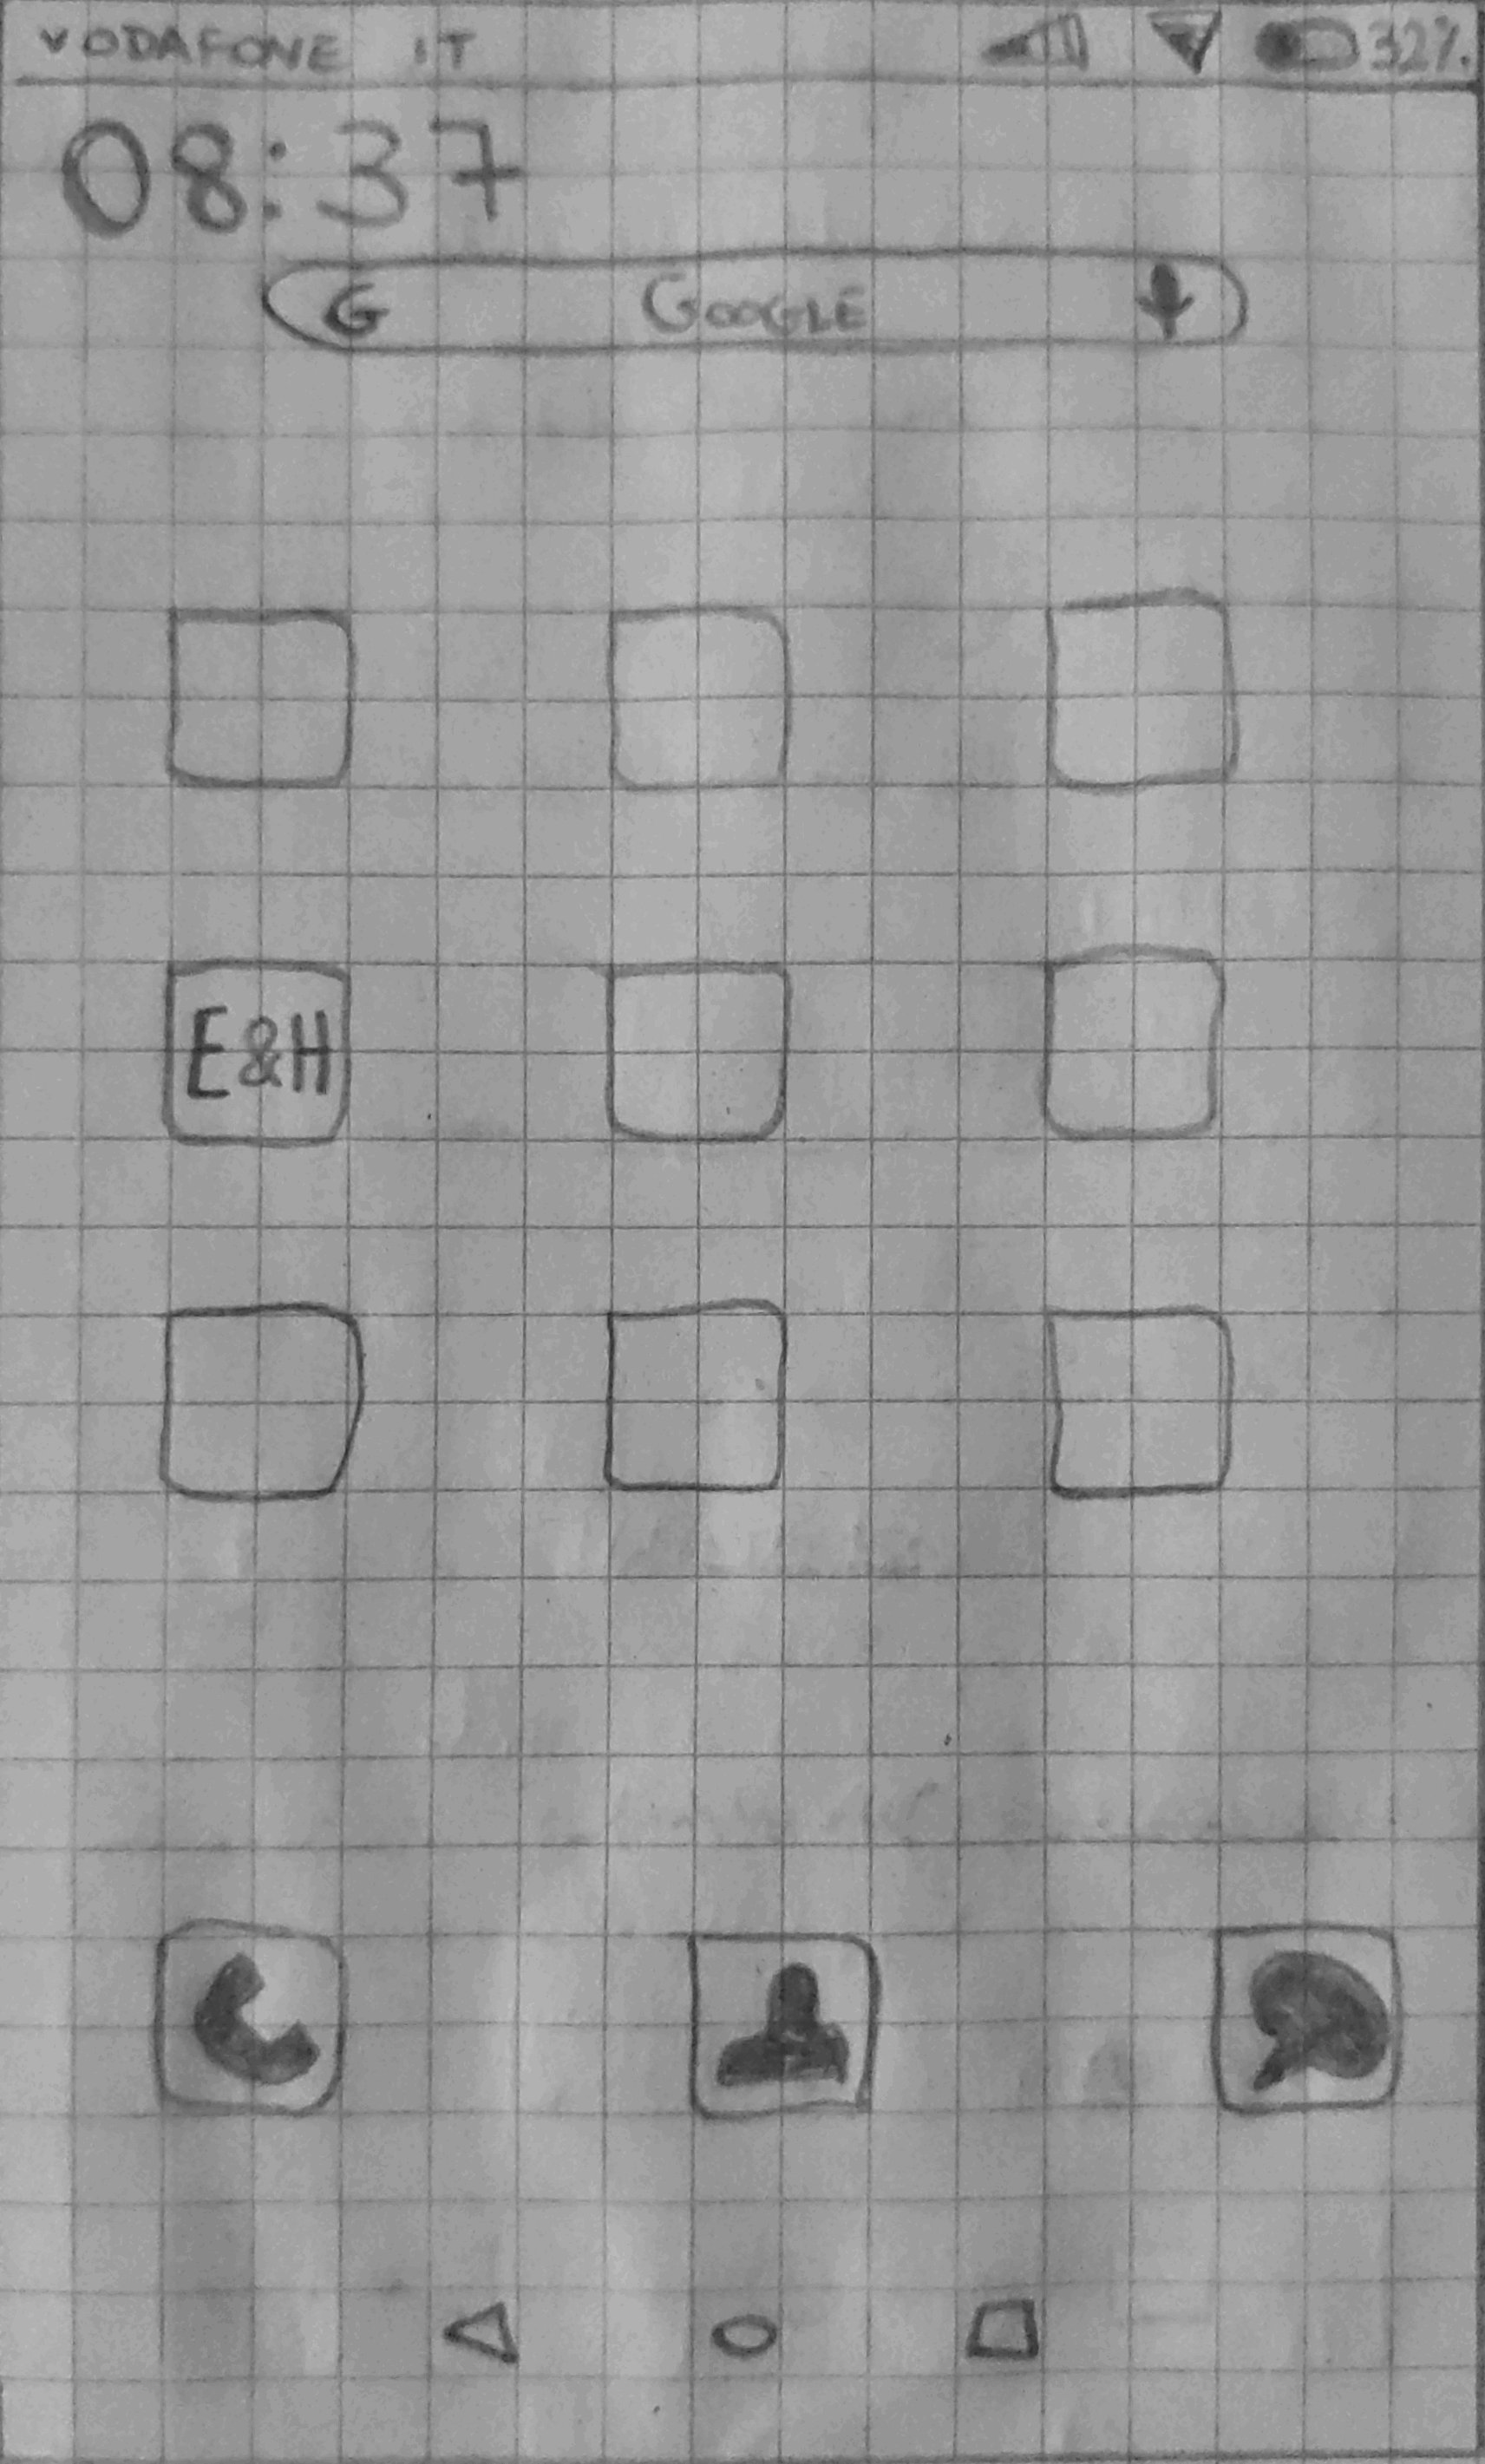 VODAFONE IT 32%
08:37
G GOOGLE
E&H